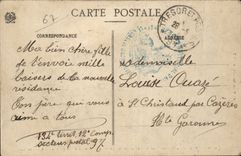 67
CARTE POSTALE
TRESOR ET
CORRESPONDANCE
ADRESSE
Ma bien chère fille
Je t'envoie mille
baisers de la nouvelle
résidance
Ton père qui vous
aime à tous
132e territ. 12e Comp.
secteur postal 97
Mademoiselle
Louise
à St Christaud par Cazères
Hte Garonne